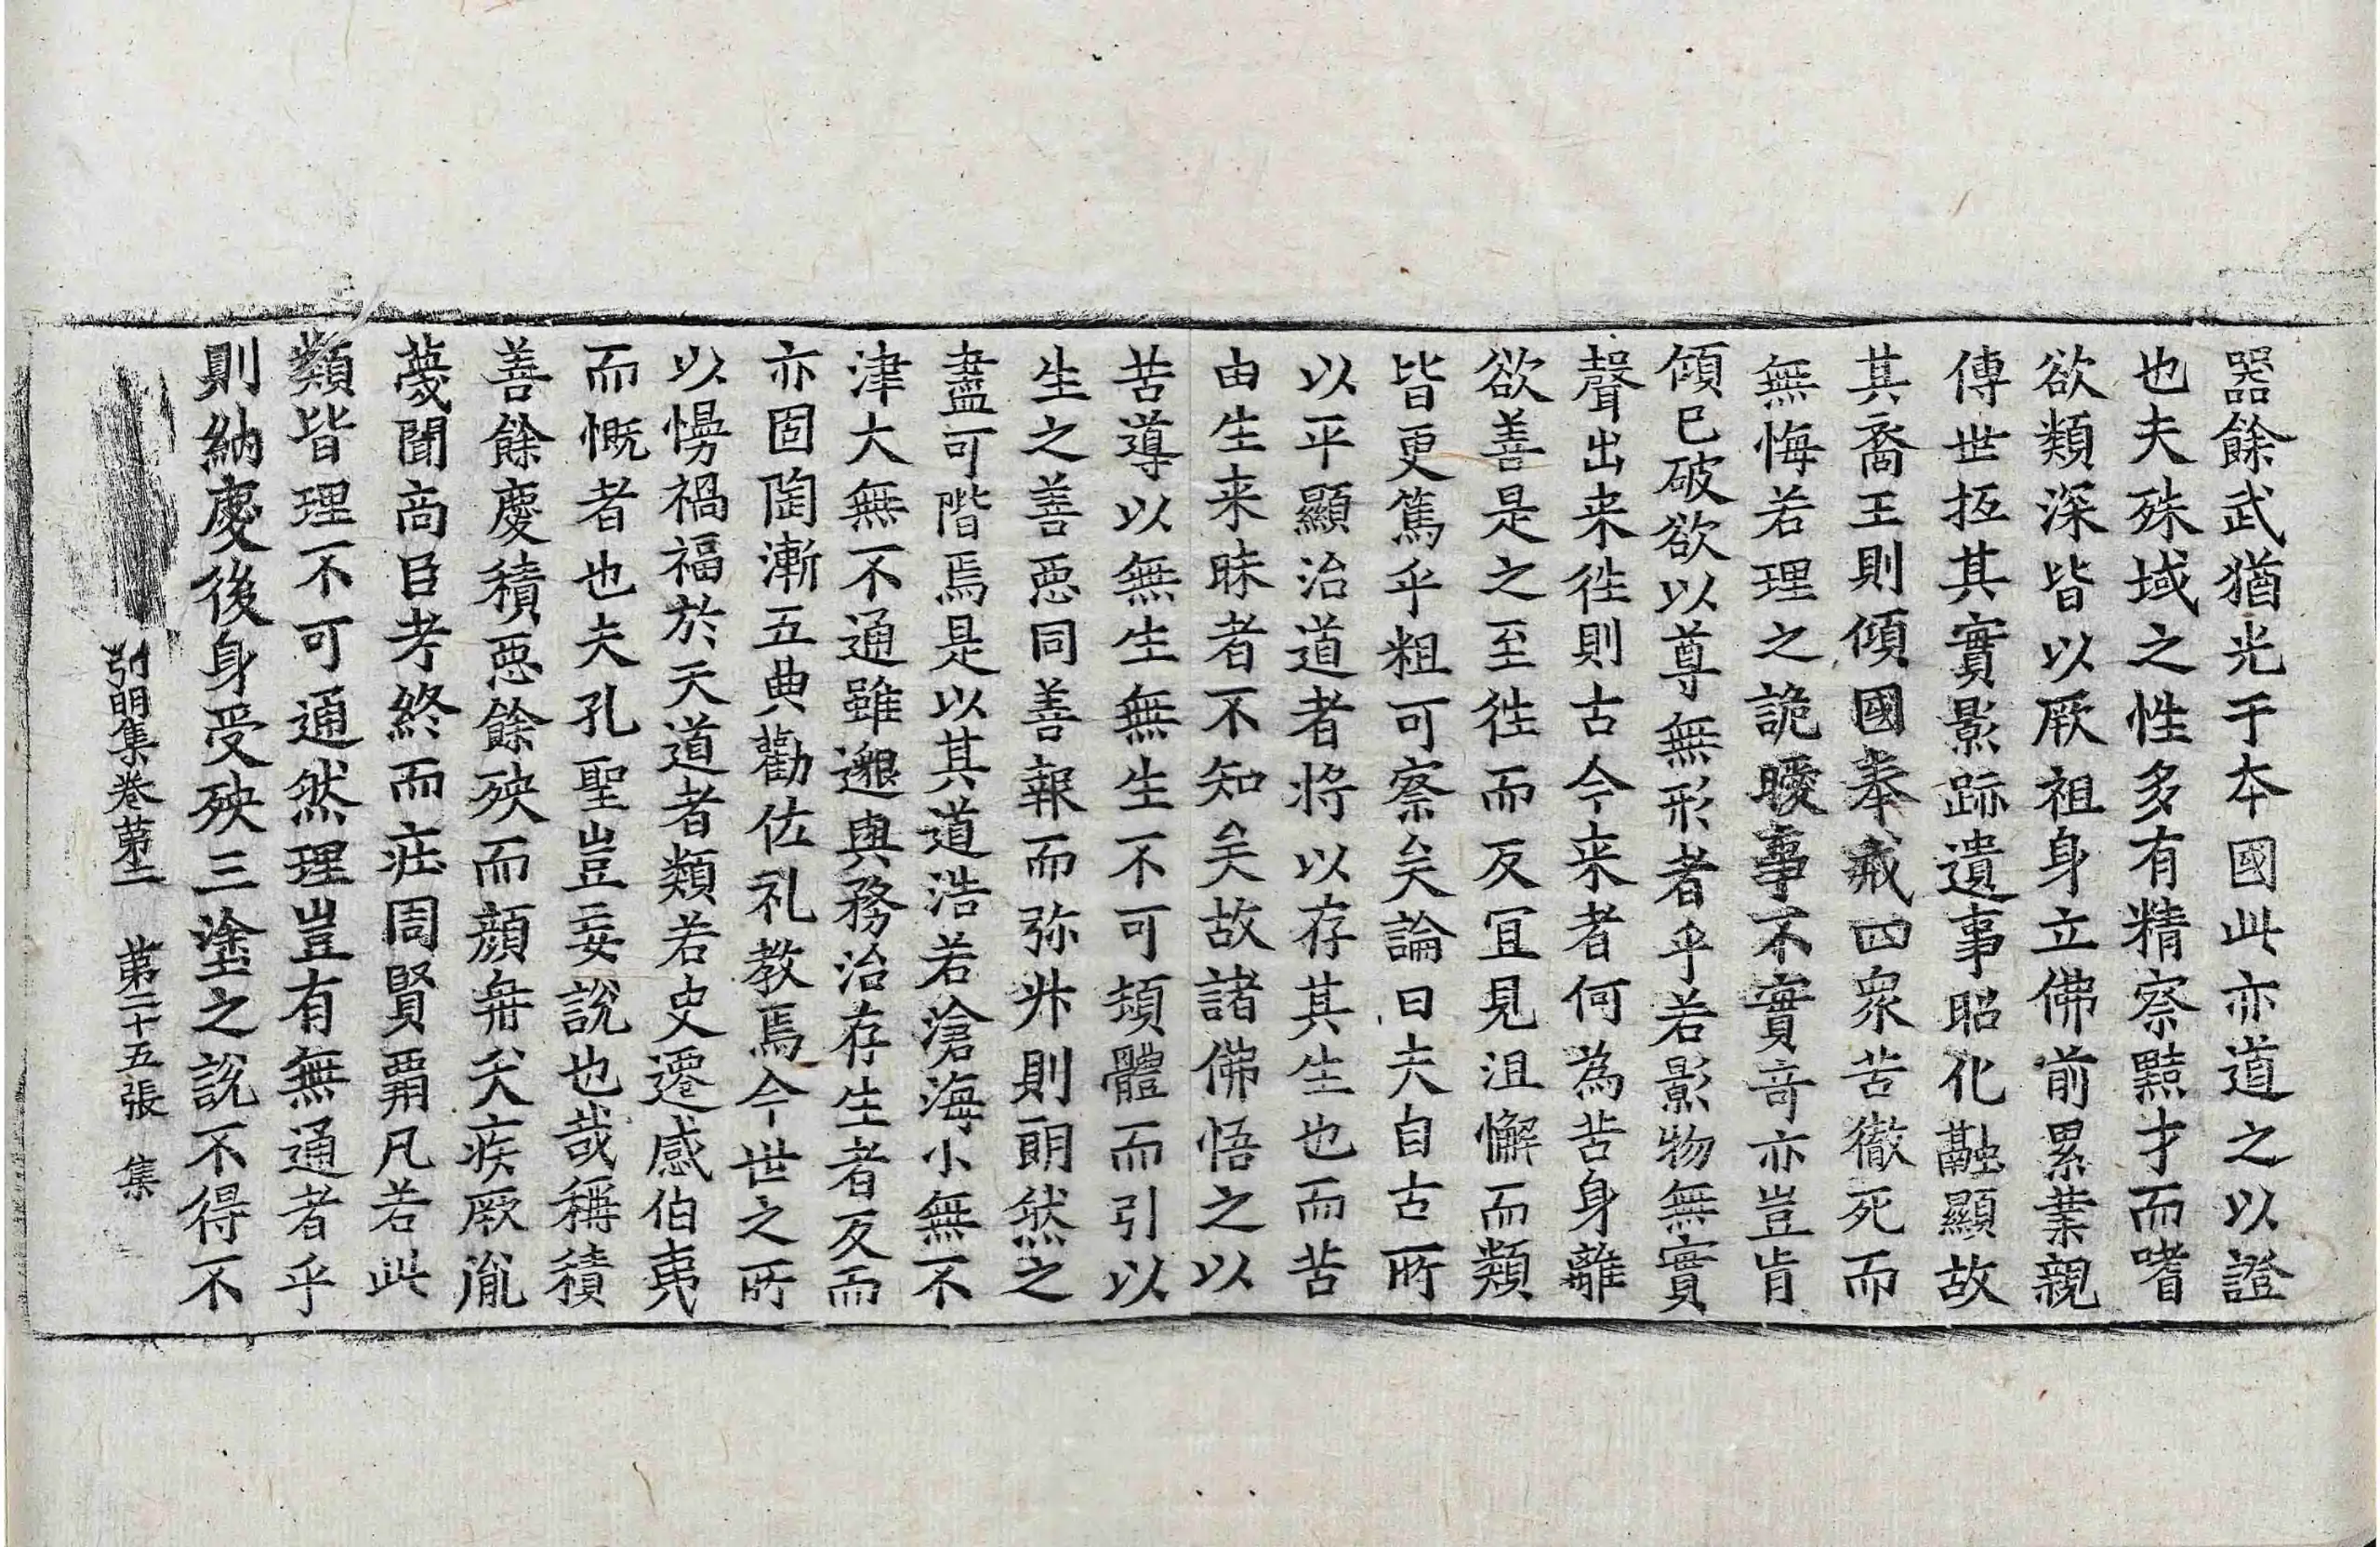 器餘武猶光于本國此亦道之以證
也夫殊域之性多有精察黠才而嗜
欲類深皆以厥祖身立佛前累葉親
傳世抵其實影跡遺事昭化融顯故
其裔王則傾國奉戒四衆苦徹死而
無悔若理之詭曖事不實竒亦豈肯
傾已破欲以尊無形者乎若影物無實
聲出来徃則古今来者何為苦身離
欲善是之至徃而反冝見沮懈而類
皆更篤乎粗可察矣論曰夫自古所
以平顯治道者将以存其生也而苦
由生来昧者不知矣故諸佛悟之以
苦導以無生無生不可頓體而引以
生之善惡同善報而弥升則朗然之
盡可階焉是以其道浩若滄海小無不
津大無不通雖邈與務治存生者反而
亦固陶漸五典勸佐礼教焉今世之所
以慢禍福於天道者類若史遷感伯夷
而慨者也夫孔聖豈妄說也㢤稱積
善餘慶積惡餘殃而顏冉夭疾厥胤
蔑聞商臣考終而莊周賢霸凡若此
類皆理不可通然理豈有無通者乎
則納慶後身受殃三塗之說不得不
弘明集卷第二　第二十五張　集